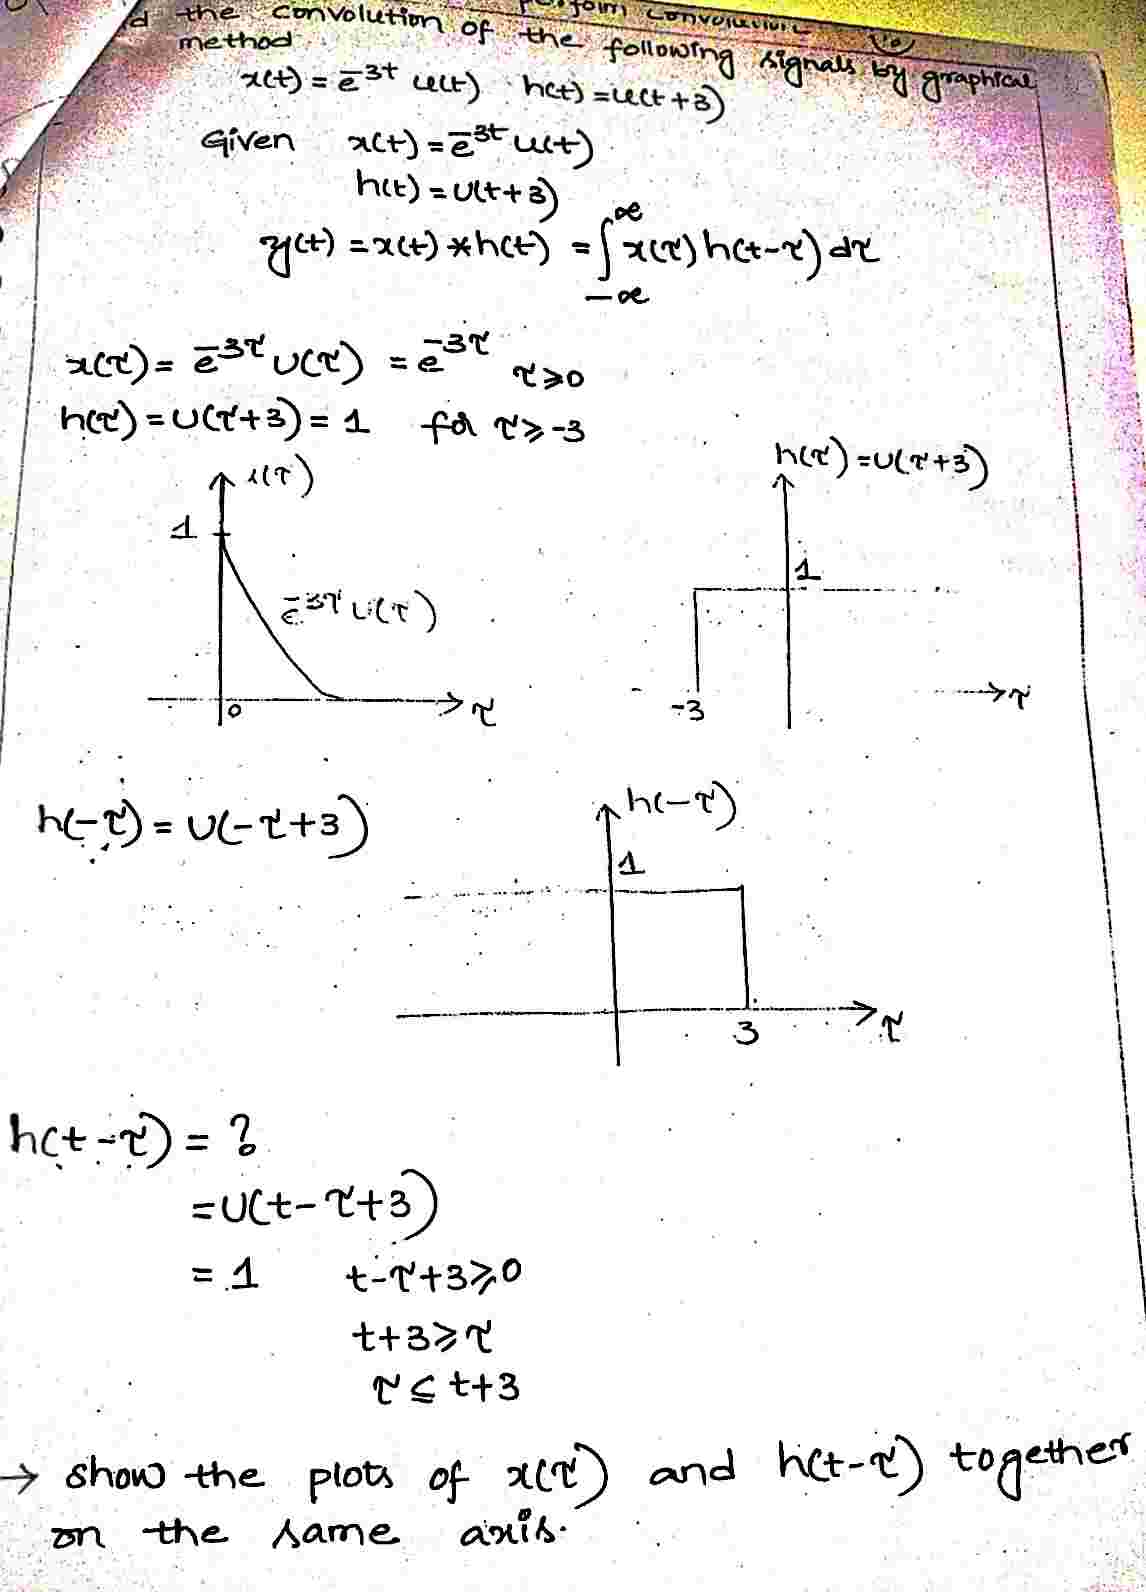 the convolution of the following signals by graphical
method
x(t) = e^-3t u(t) h(t) = u(t+3)
Given x(t) = e^-3t u(t)
h(t) = u(t+3)
y(t) = x(t) * h(t) = ∫_-∞^∞ x(τ) h(t-τ) dτ
x(τ) = e^-3τ u(τ) = e^-3τ τ≥0
h(τ) = u(τ+3) = 1 for τ≥-3
x(τ)
1
e^-3τ u(τ)
0
τ
h(τ) = u(τ+3)
1
-3
τ
h(-τ) = u(-τ+3)
h(-τ)
1
3
τ
h(t-τ) = ?
= u(t-τ+3)
= 1 t-τ+3≥0
t+3≥τ
τ≤t+3
→ show the plots of x(τ) and h(t-τ) together
on the same axis.